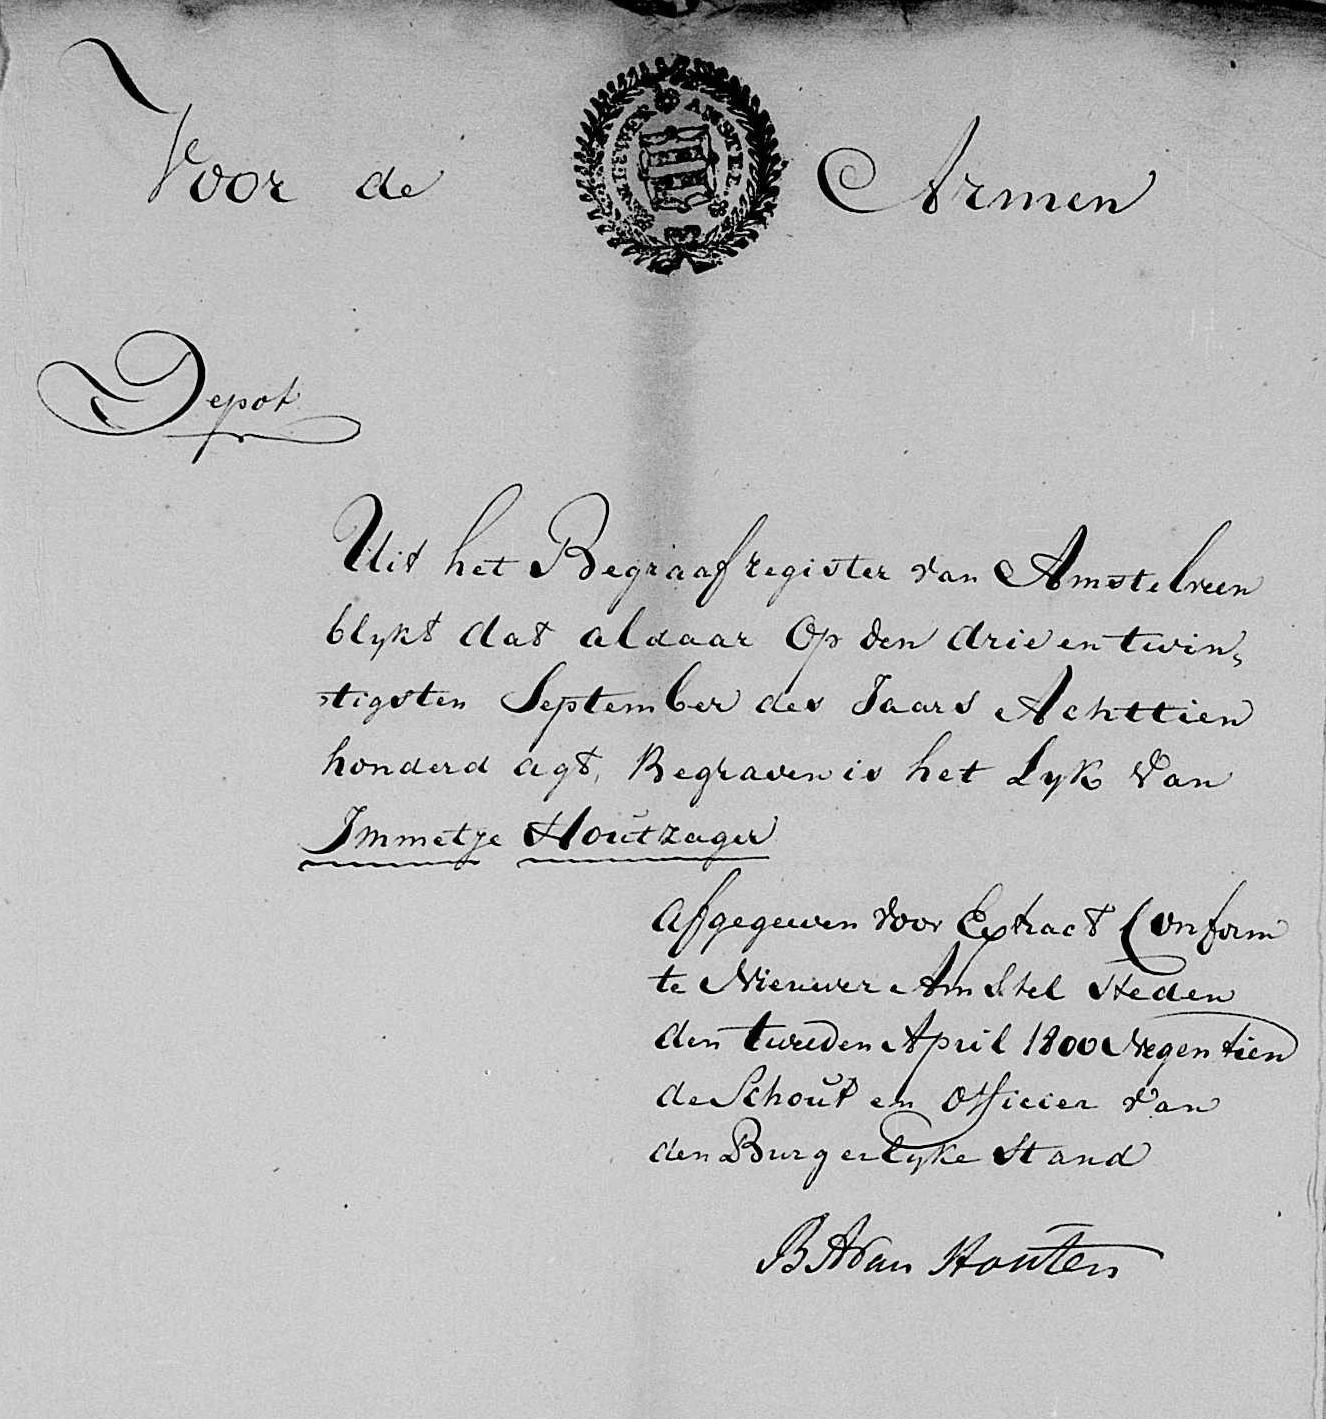 Voor de Armen
Depot
Uit het Begraafregister van Amstelveen
blykt dat aldaar Op den drie en twin„
tigsten September des Jaars Achttien
honderd agt, Begraven is het Lyk van
Immetje Houtzager
afgegeven voor Extract Conform
te Nieuwer Amstel Heden
den tweeden April 1800 Negentien
de Schout en Officier van
den Burgerlyke Stand
B A van Houten